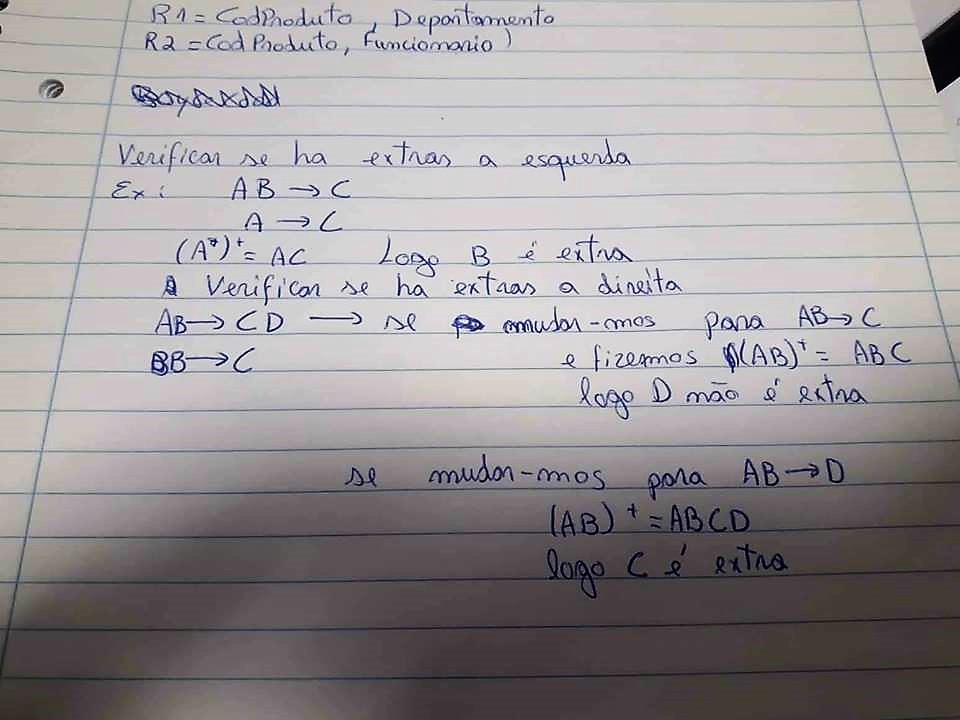 R1 = CodProduto, Departamento
R2 = Cod Produto, Funcionario)
Verificar se ha extras a esquerda
Ex: AB → C
A → C
(A)⁺ = AC Logo B é extra
Verificar se ha extras a direita
AB → CD → se mudar-mos para AB → C
B → C e fizermos (AB)⁺ = ABC
logo D não é extra
se mudar-mos para AB → D
(AB)⁺ = ABCD
logo C é extra